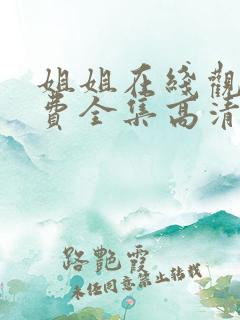 姐姐在綫觀
費全集高清
路艷霞
未经同意禁止转载